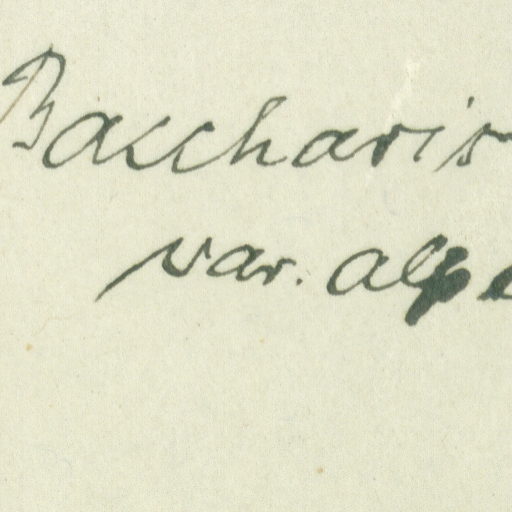 Baccharis
var. alp